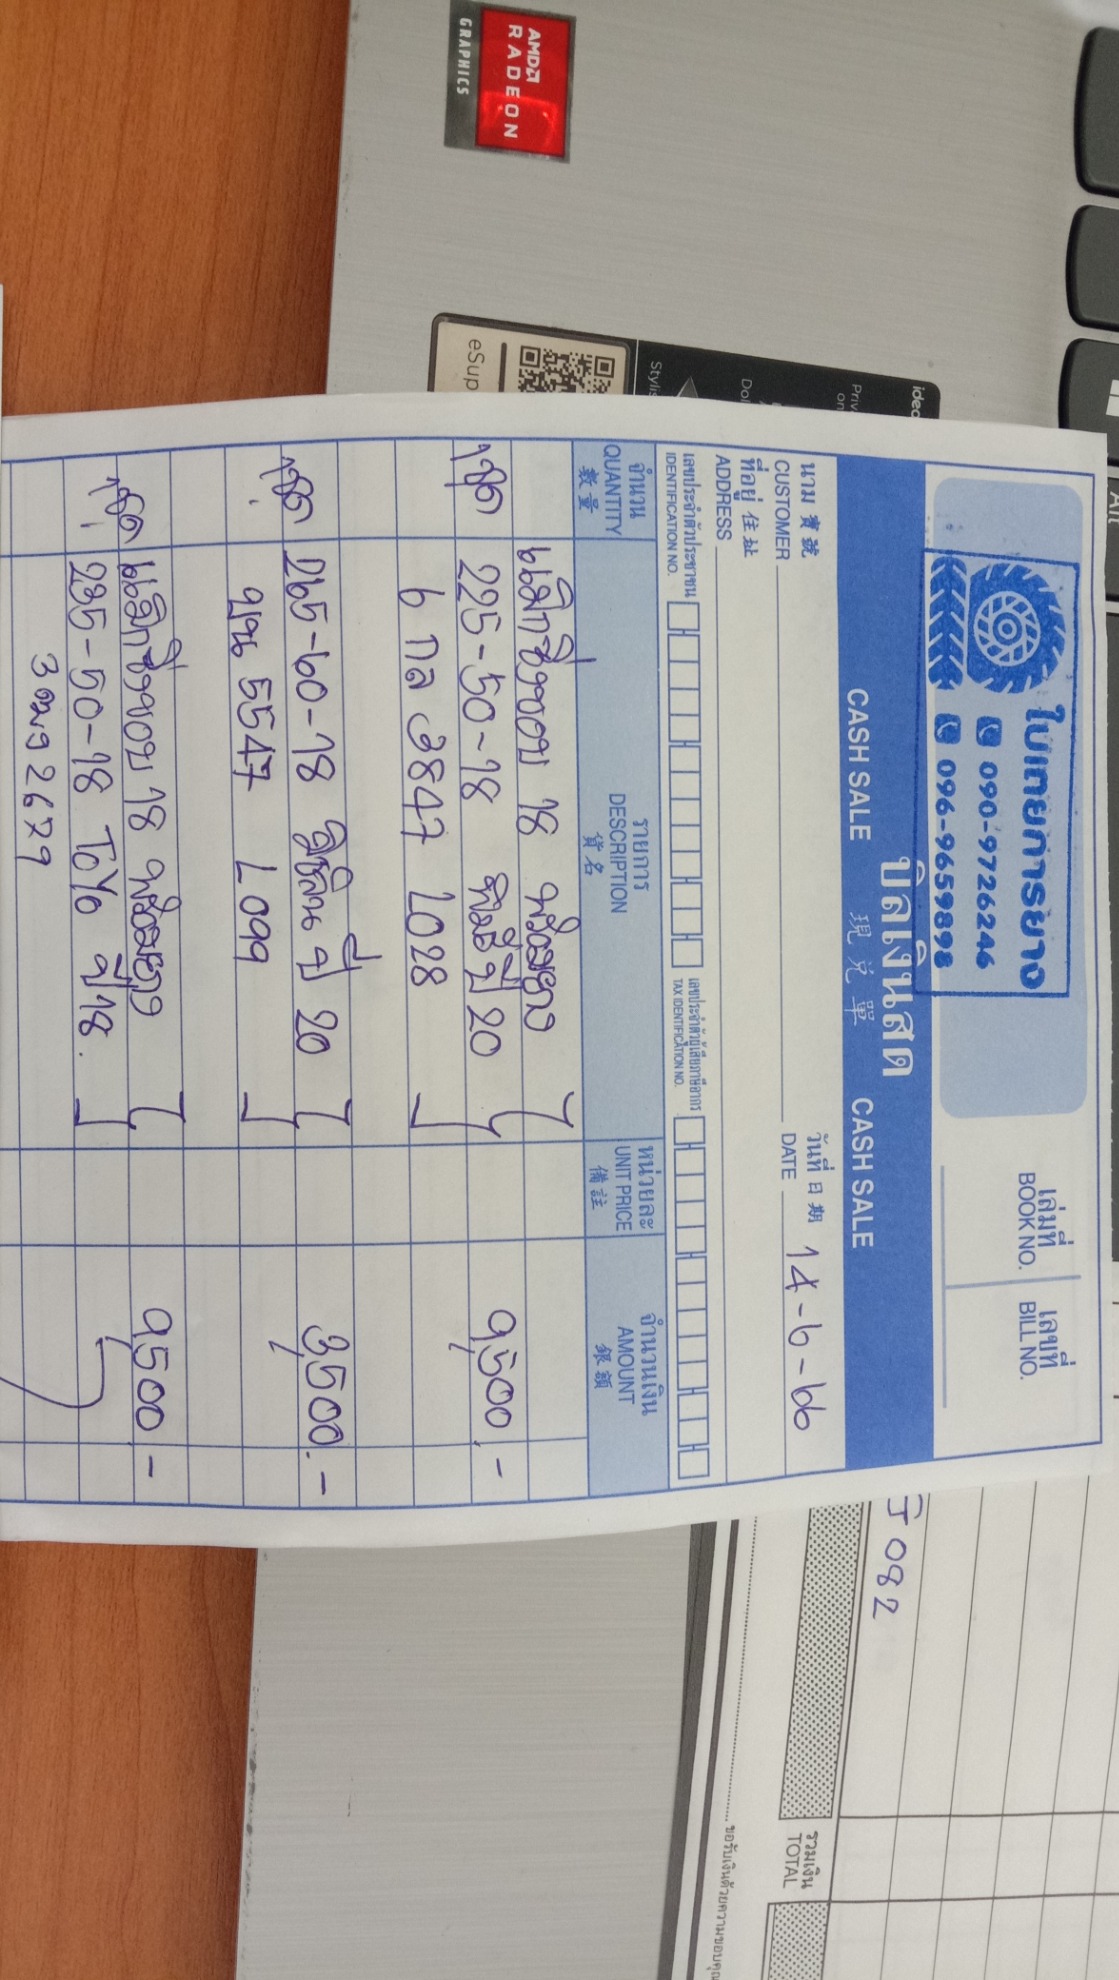 AMD
RADEON
GRAPHICS
eSup
Stylis
Dol
Priv
on
idea
Alt
ใบเตยการยาง
090-9726246
096-9659898
เล่มที่
BOOK NO.
เลขที่
BILL NO.
บิลเงินสด
CASH SALE 現兌單 CASH SALE
นาม 寶號
CUSTOMER
วันที่ 日期
DATE 14-6-66
ที่อยู่ 住址
ADDRESS
เลขประจำตัวประชาชน
IDENTIFICATION NO.
เลขประจำตัวผู้เสียภาษีอากร
TAX IDENTIFICATION NO.
จำนวน
QUANTITY
數量
รายการ
DESCRIPTION
貨名
หน่วยละ
UNIT PRICE
備註
จำนวนเงิน
AMOUNT
銀額
แม็กซ์ขอบ 18 พร้อมยาง
1ชุด 225-50-18 ปี 20 9,500.-
6 กล 3847 L028
1ชุด 265-60-18 มิชลิน ปี 20 3,500.-
5547 L099
แม็กซ์ขอบ 18 พร้อมยาง 9,500.-
1ชุด 235-50-18 TOYO ปี 18.
2679
J082
รวมเงิน
TOTAL
ขอรับเงินด้วยความขอบคุณ